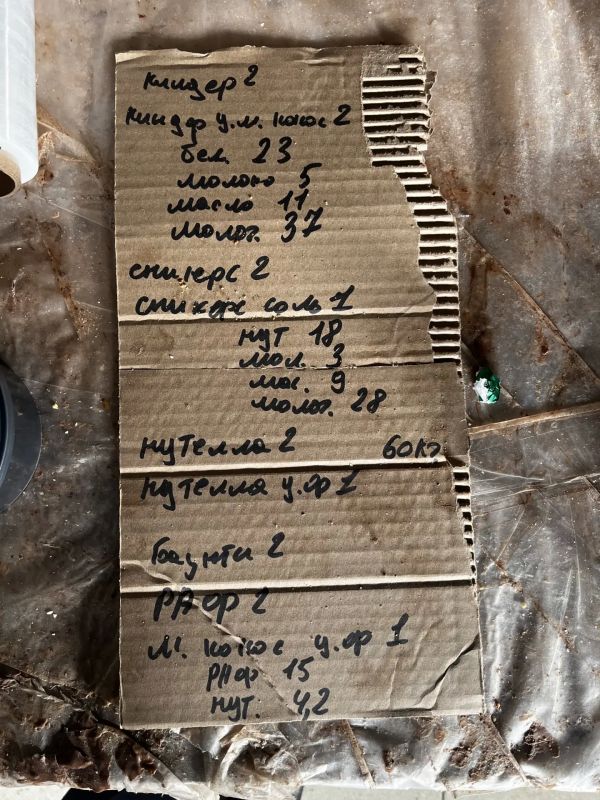 киндер 2
киндер у.м. кокос 2
бел. 23
молоко 5
масло 11
молот. 37
сникерс 2
сникерс соль 1
нут 18
мол. 3
мас. 9
молот. 28
нутелла 2 60кг.
нутелла у.ор 1
баунти 2
РАор 2
м. кокос у.ор 1
РАор 15
нут. 4,2